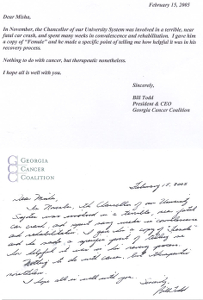 February 15, 2005
Dear Misha,
In November, the Chancellor of our University System was involved in a terrible, near
fatal car crash, and spent many weeks in convalescence and rehabilitation. I gave him
a copy of "Female" and he made a specific point of telling me how helpful it was in his
recovery process.
Nothing to do with cancer, but therapeutic nonetheless.
I hope all is well with you.
Sincerely,
Bill Todd
President & CEO
Georgia Cancer Coalition
GEORGIA
CANCER
COALITION
February 15,
Dear Misha,
In November, the Chancellor of our University
System was involved in a terrible, near fatal
car crash, and spent many weeks in convalescence
and rehabilitation. I gave him a copy of
and he made a specific point of telling me
how helpful it was in his recovery process.
Nothing to do with cancer, but therapeutic
nonetheless.
I hope all is well with you.
Sincerely,
Bill Todd